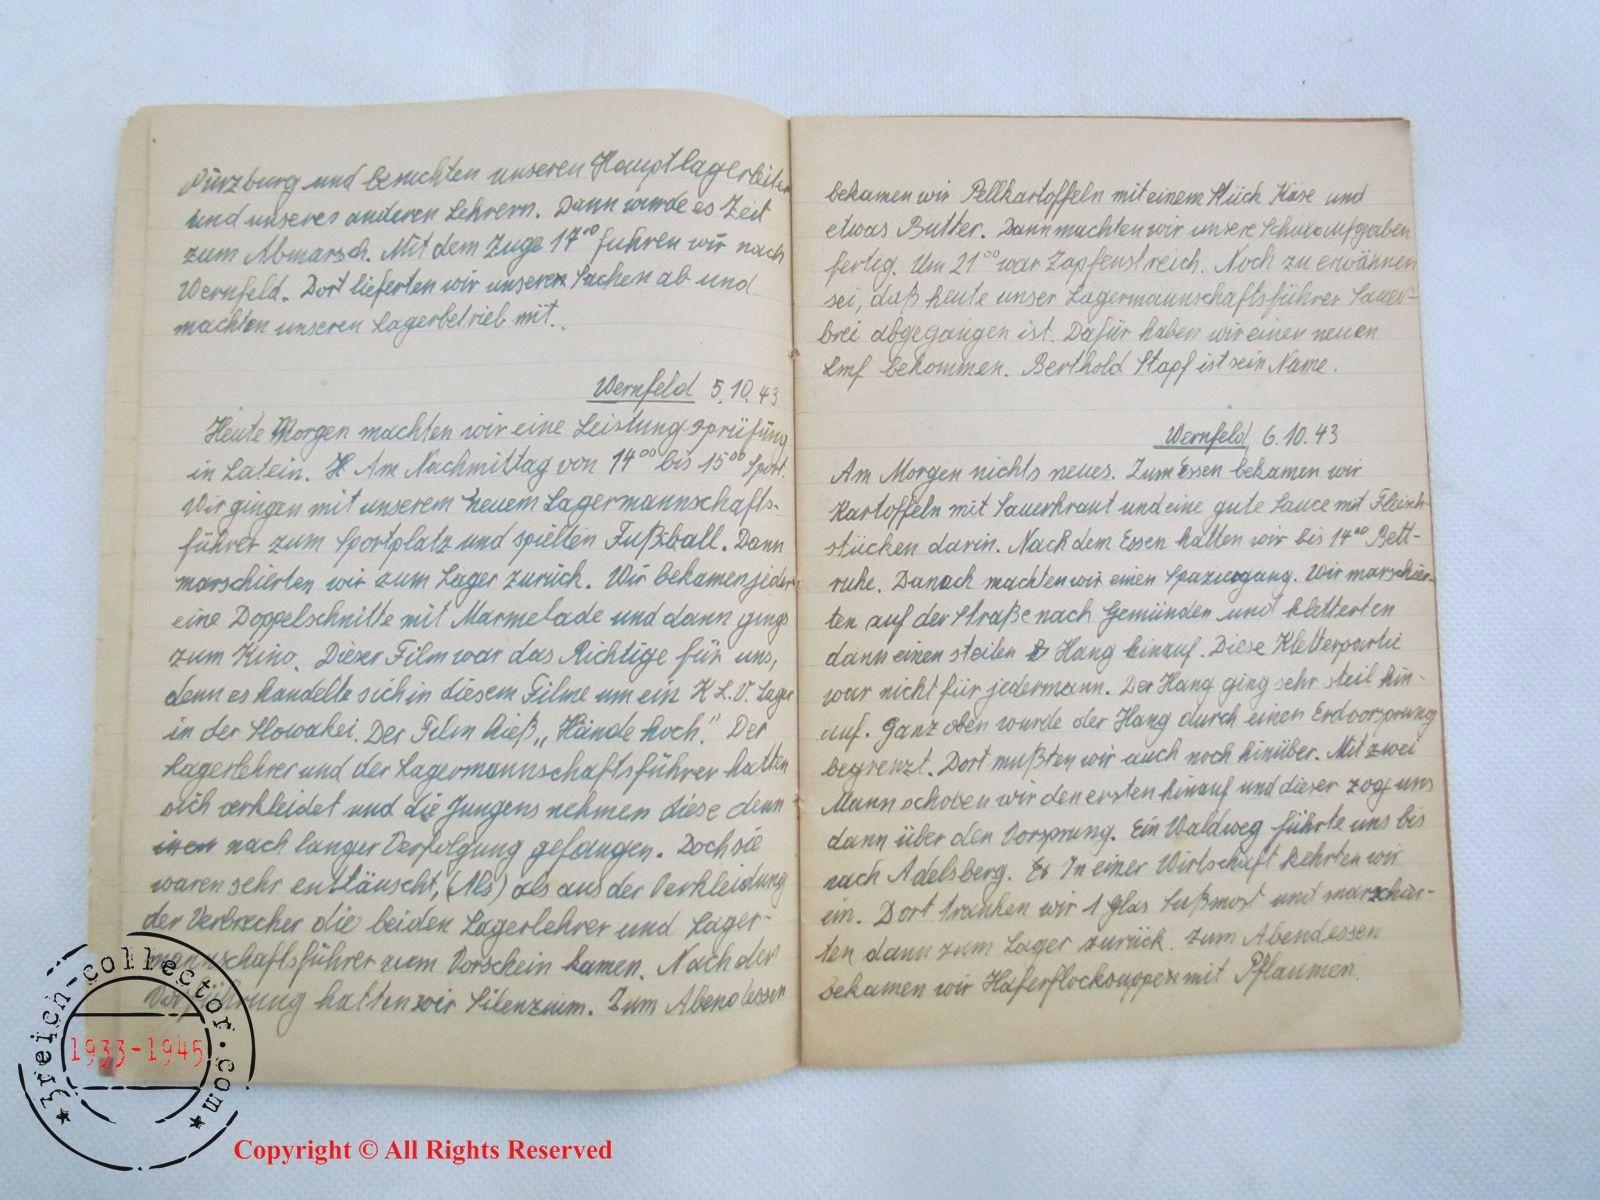 Würzburg und besuchten unseren Hauptlagerleiter
und unseres anderen Lehrern. Dann wurde es Zeit
zum Abmarsch. Mit dem Zuge 17⁰⁰ fuhren wir nach
Wernfeld. Dort lieferten wir unseren Sachen ab und
machten unseren Lagerbetrieb mit.
Wernfeld 5.10.43
Heute Morgen machten wir eine Leistungsprüfung
in Latein. Am Nachmittag von 14⁰⁰ bis 15⁰⁰ Sport.
Wir gingen mit unserem neuem Lagermannschafts-
führer zum Sportplatz und spielten Fußball. Dann
marschierten wir zum Lager zurück. Wir bekamen jeder
eine Doppelschnitte mit Marmelade und dann gings
zum Kino. Dieser Film war das Richtige für uns,
denn es handelte sich in diesem Filme um ein K.L.V. Lager
in der Slowakei. Der Film hieß „Hände hoch." Der
Lagerlehrer und der Lagermannschaftsführer hatten
sich verkleidet und die Jungens nehmen diese denn
nach langer Verfolgung gefangen. Doch sie
waren sehr enttäuscht, (Als) als aus der Verkleidung
der Verbrecher die beiden Lagerlehrer und Lager-
mannschaftsführer zum Vorschein kamen. Nach der
Vorführung hatten wir Silenzium. Zum Abendessen
bekamen wir Pellkartoffeln mit einem Stück Käse und
etwas Butter. Dann machten wir unsere Schulaufgaben
fertig. Um 21⁰⁰ war Zapfenstreich. Noch zu erwähnen
sei, daß heute unser Lagermannschaftsführer Sauer-
brei abgegangen ist. Dafür haben wir einen neuen
Lmf bekommen. Berthold Stapf ist sein Name.
Wernfeld 6.10.43
Am Morgen nichts neues. Zum Essen bekamen wir
Kartoffeln mit Sauerkraut und eine gute Sauce mit Fleisch-
stücken darin. Nach dem Essen hatten wir bis 14⁰⁰ Bett-
ruhe. Danach machten wir einen Spaziergang. Wir marschier-
ten auf der Straße nach Gemünden und kletterten
dann einen steilen Hang hinauf. Diese Kletterpartie
war nicht für jedermann. Der Hang ging sehr steil hin-
auf. Ganz oben wurde der Hang durch einen Erdvorsprung
begrenzt. Dort mußten wir auch noch hinüber. Mit zwei
Mann schoben wir den ersten hinauf und dieser zog uns
dann über den Vorsprung. Ein Waldweg führte uns bis
nach Adelsberg. Es In einer Wirtschaft kehrten wir
ein. Dort tranken wir 1 Glas Süßmost und marschier-
ten dann zum Lager zurück. Zum Abendessen
bekamen wir Haferflockensuppe mit Pflaumen.
3reich-collector.com
1933-1945
Copyright © All Rights Reserved